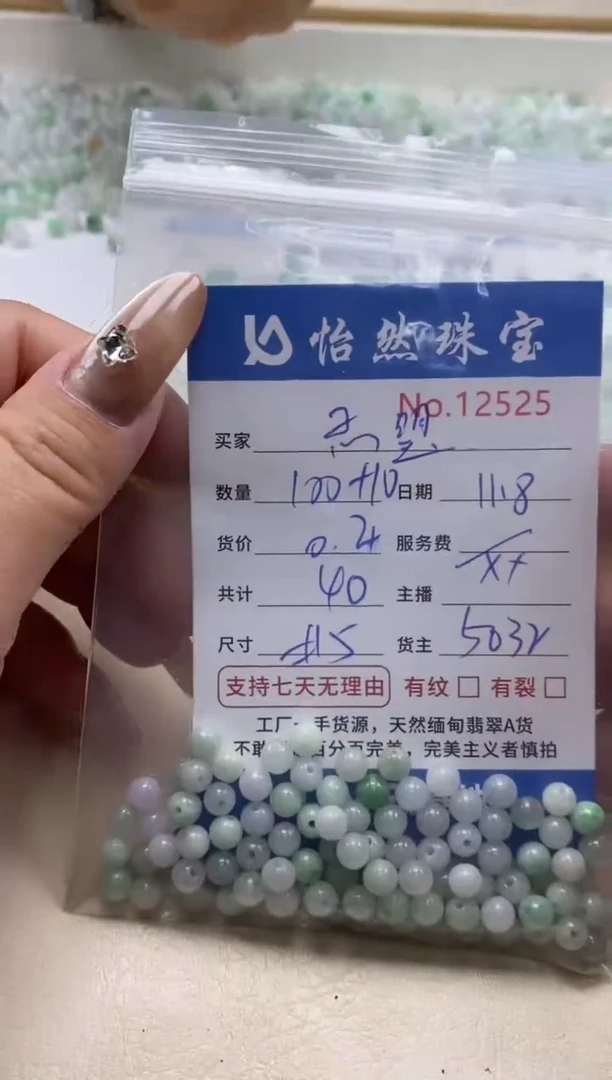 怡然珠宝
No.12525
买家
数量 100+10 日期 11.8
货价 0.4 服务费
共计 40 主播
尺寸 货主 5032
支持七天无理由 有纹 □ 有裂 □
工厂一手货源，天然缅甸翡翠A货
不敢 百分百完美，完美主义者慎拍